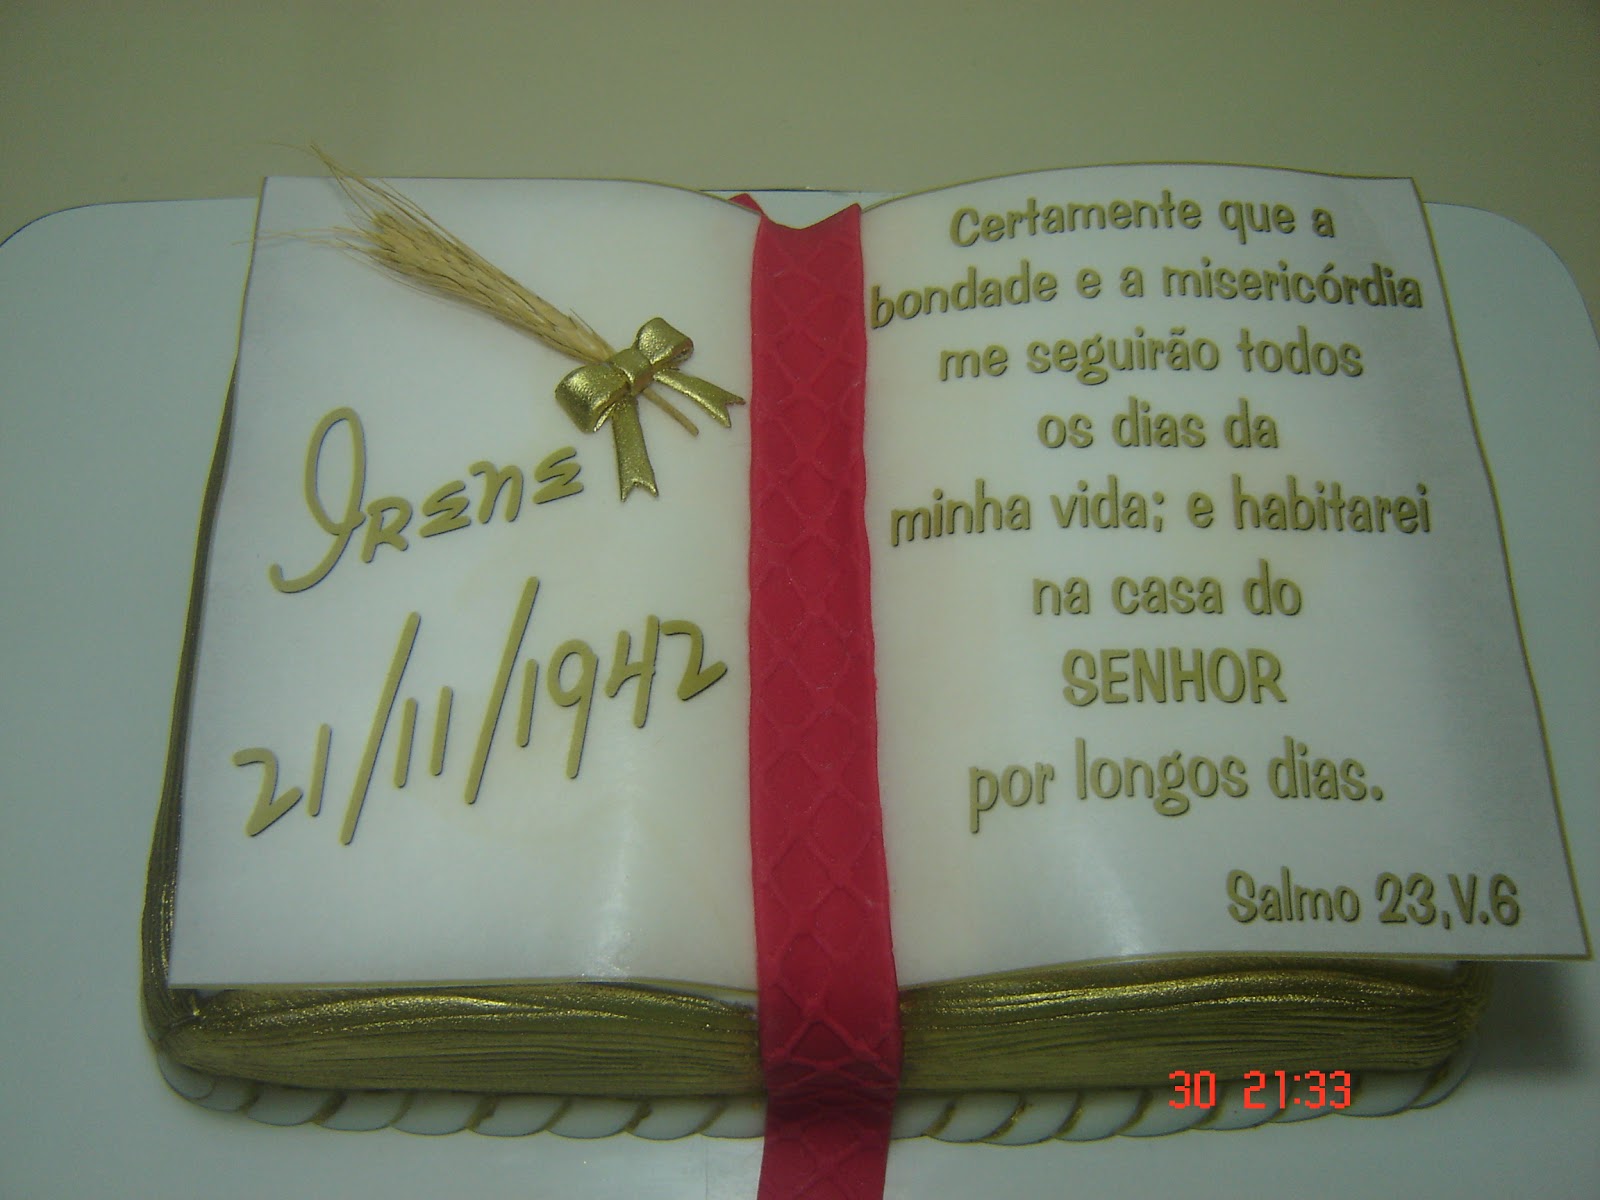 Irene
21/11/1942
Certamente que a
bondade e a misericórdia
me seguirão todos
os dias da
minha vida; e habitarei
na casa do
SENHOR
por longos dias.
Salmo 23,V.6
30 21:33